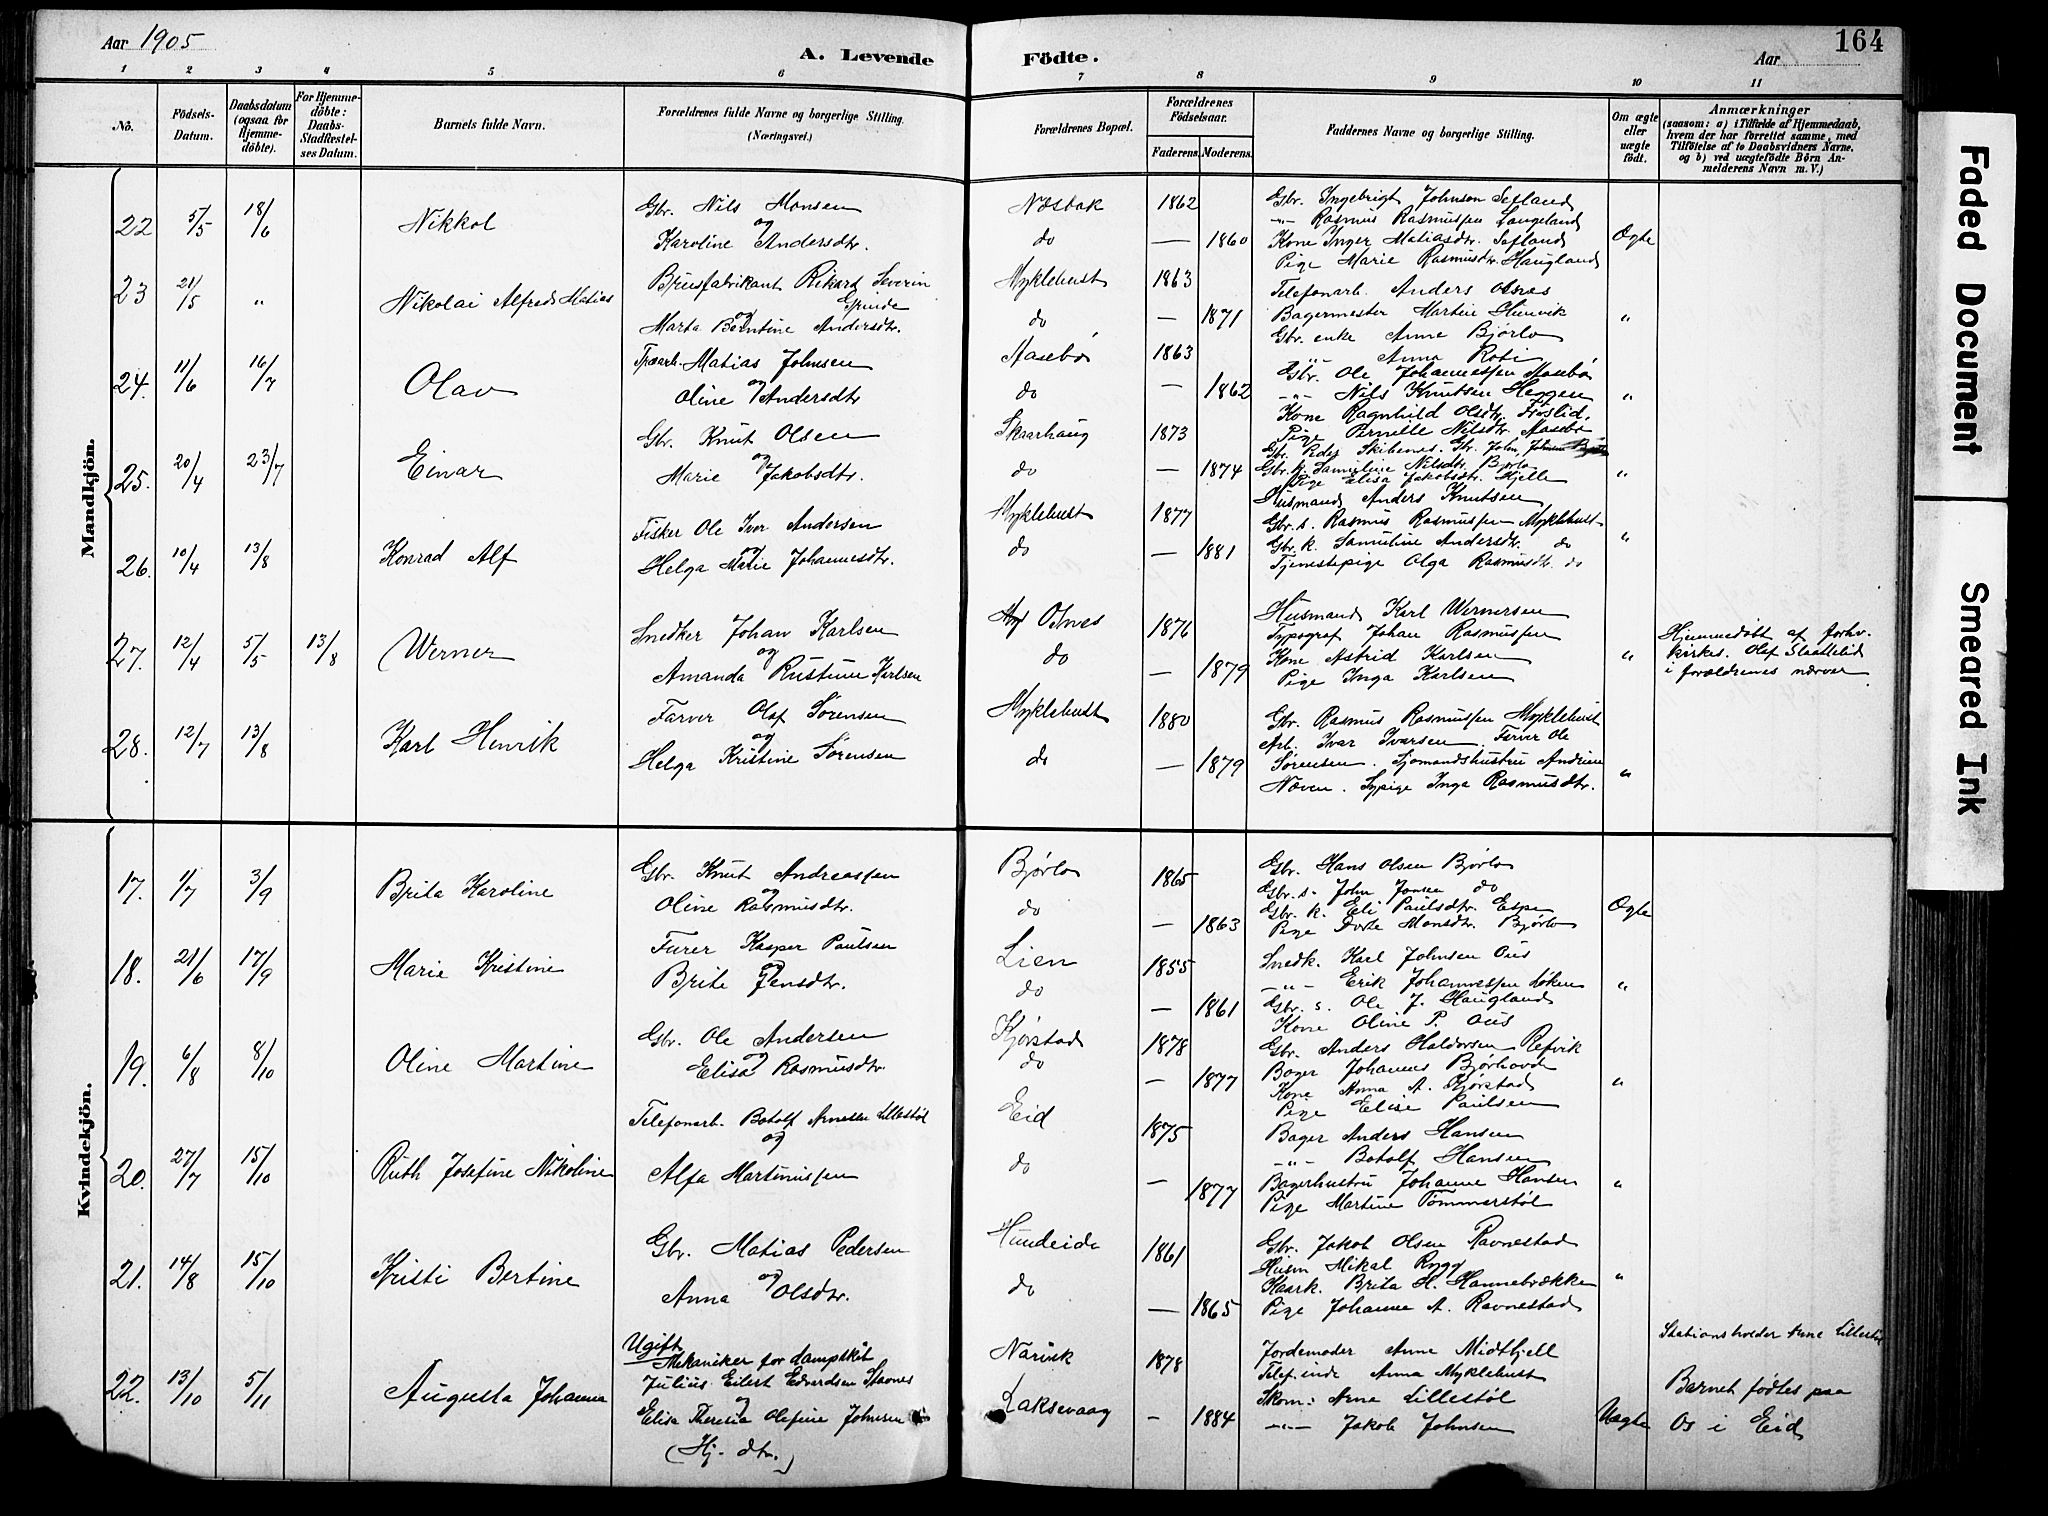 Aar 1905
A. Levende Födte.
Aar
164
1 2 3 4 5 6 7 8 9 10 11
No.
Födsels-Datum.
Daabsdatum (ogsaa for Hjemme-döbte).
For Hjemme-döbte: Daabs-Stadfæstel-ses Datum.
Barnets fulde Navn.
Forældrenes fulde Navne og borgerlige Stilling. (Næringsvei.)
Forældrenes Bopæl.
Forældrenes Födselsaar.
Faderens. Moderens.
Faddernes Navne og borgerlige Stilling.
Om ægte eller uægte födt.
Anmærkninger
(saasom: a) i Tilfælde af Hjemmedaab,
hvem der har forrettet samme, med
Tilföielse af to Daabsvidners Navne,
og b) ved uægtefödte Börn An-
melderens Navn m. V.)
Mandkjön.
22 5/5 18/6 Nikkol
Gbr. Nils Monsen
og
Karoline Andersdtr.
Næsbak 1862
do — 1860
Gbr. Ingebrigt Johnson Sefland
-"- Rasmus Rasmussen Langeland
Kone Inger Matiasdtr. Sefland
Pige Marie Rasmusdtr. Haugland
Ægte
23 21/5 " Nikolai Alfred Matias
Brusfabrikant Rikard Severin
Espinde
og
Marta Berntine Andersdtr.
Myklebust 1863
do — 1871
Telefonarb. Anders Osnes
Bagermester Martin
Gbr. enke Anne Bjørlo
-"- Anna Roti
"
24. 11/6 16/7 Olav
Træarb. Matias Johnsen
og
Oline Andersdtr
Aasebø 1863
do — 1862
Gbr. Ole Johannessen Aasebø
-"- Nils Knutsen Heggen
Kone Ragnhild Olsdtr.
Pige Pernille Nilsdtr. Aasebø
"
25. 20/4 23/7 Einar
Gbr. Knut Olsen
og
Marie Jakobsdtr.
Skaarhaug 1873
do — 1874
Gbr. Peder Skibenes. Gbr. John Johnsen
Gbr. k. Samuline Nilsdtr. Bjørlo
Pige Elisa Jakobsdtr. Hjelle
"
26. 10/4 13/8 Konrad Alf
Fisker Ole Iver Andersen
og
Helga Marie Johannesdtr.
Myklebust 1877
do — 1881
Husmand Anders Knutsen
Gbr. s. Rasmus Rasmussen Myklebust
Gbr. k. Samuline Andersdtr. do
Tjenestepige Olga Rasmusdtr. do
"
27. 12/4 5/5 13/8 Werner
Snedker Johan Karlsen
og
Amanda Rustine Karlsen
Osnes 1876
do — 1879
Husmand Karl Wernersen
Typograf Johan Rasmussen
Kone Astrid Karlsen
Pige Inga Karlsen
"
Hjemmedøbt af forhv.
kirkes. Olef Slattelid
i forældrenes nærvær
28. 12/7 13/8 Karl Henrik
Farver Olaf Sørensen
og
Helga Kristine Sørensen
Myklebust 1880
do — 1879
Gbr. Rasmus Rasmussen Myklebust
Arb. Ivar Ivarsen. Farver Ole
Sørensen. Sjømandshustru Andrine
Naven. Sypige Inga Rasmusdtr.
"
Kvindekjön.
17. 1/7 3/9 Brita Karoline
Gbr. Knut Andreassen
og
Oline Rasmusdtr.
Bjørlo 1865
do — 1863
Gbr. Hans Olsen Bjørlo
Gbr. s. John Jonsen do
Gbr. k. Eli Paulsdtr. Espe
Pige Dorte Monsdtr. Bjørlo
Ægte
18. 21/6 17/9 Marie Kristine
Furer Kasper Paulsen
og
Brite Jensdtr.
Lien 1855
do — 1861
Snedk. Karl Johnsen Ous
-"- Erik Johannessen Løken
Gbr. s. Ole J. Haugland
Kone Oline P. Ous
"
19. 6/8 8/10 Oline Martine
Gbr. Ole Andersen
og
Elisa Rasmusdtr.
Kjørstad 1878
do — 1877
Gbr. Anders Haldorsen Refvik
Bager Johannes Bjørhovde
Kone Anna A. Kjørstad
Pige Elise Paulsen
"
20. 27/7 15/10 Ruth Josefine Nikoline
Telefonarb. Botolf Arnesen Lillestøl
og
Alfa Martinussen
Eid 1875
do — 1877
Bager Anders Hansen
-"- Botolf Hansen
Bagerhustru Johanne Hansen
Pige Martine Tømmerstøl
"
21. 14/8 15/10 Kristi Bertine
Gbr. Matias Pedersen
og
Anna Olsdtr.
Hundeide 1861
do — 1865
Gbr. Jakob Olsen Ravnestad
Husm Mikal Rygg
Kaark. Brita H. Hannebrække
Pige Johanne A. Ravnestad
"
22. 13/10 5/11 Augusta Johanna
Ugift
Mekaniker for dampskib
Julius Eilert Edvardsen Stavnes
og
Elisa Theresia Olefine Johnsen
(Hj. dtr.)
Narvik 1878
Laksevaag — 1884
Jordemoder Anne Midthjell
Telef.inde Anna Myklebust
Skom: Arne Lillestøl
-"- Jakob Johnsen
Uægte
Stationsholder Arne Lillestøl
Barnet fødtes paa
Os i Eid
Faded Document
Smeared Ink